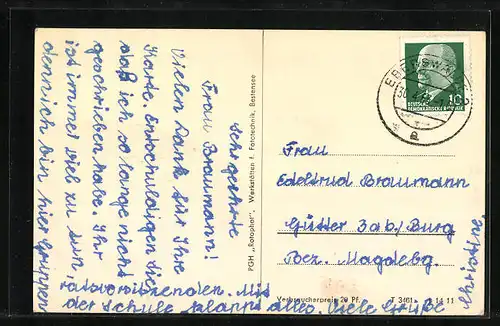 Sehr geehrte
Frau Braumann!
Vielen Dank für Ihre
Karte. Entschuldigen Sie,
daß ich so lange nicht
geschrieben habe. Ihr
ist immer viel zu tun,
dennich bin hier Gruppen
ratsvorsitzenden. Mit
der Schule klappt alles. Viele Grüße
Christine.
PGH „Rotophot", Werkstätten f. Fototechnik, Bestensee
DEUTSCHE
DEMOKRATISCHE REPUBLIK
10
Frau
Edeltrud Braumann
Güsen 3ab./Burg
Bez. Magdebg.
Verbraucherpreis 20 Pf.